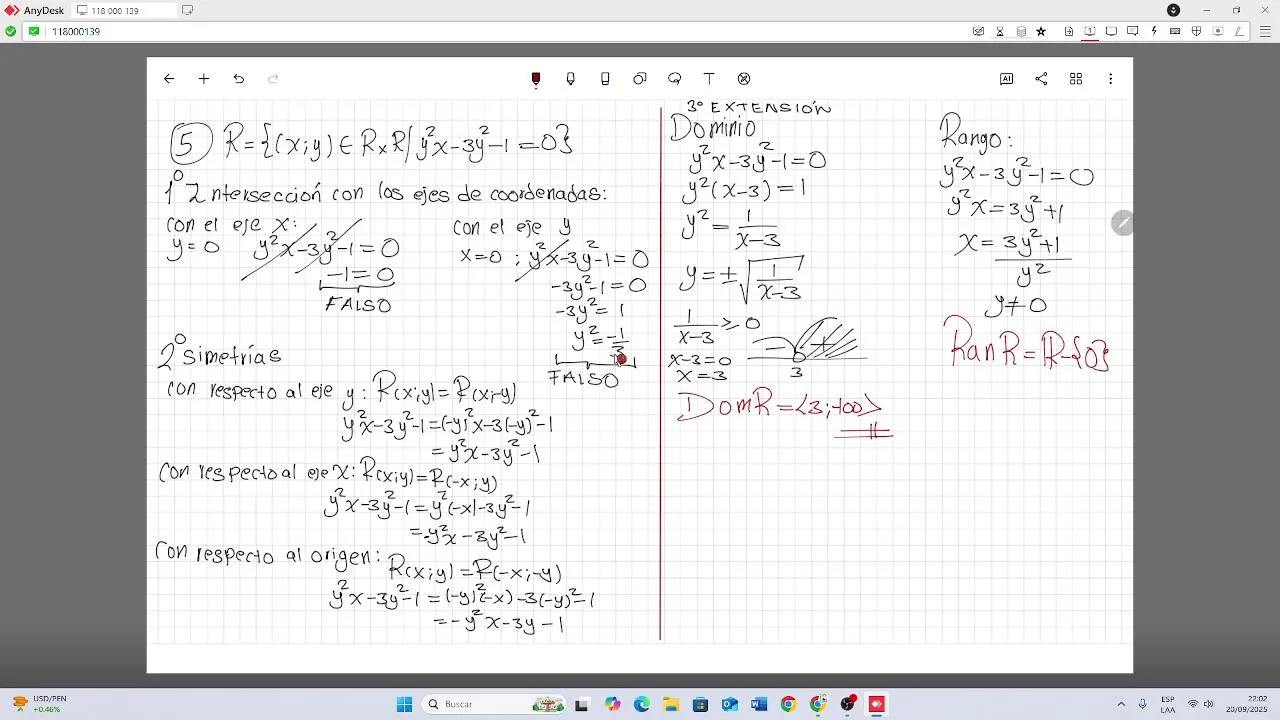 AnyDesk
118 000 139
118000139
AI
5 R={(x;y)∈RxR/y²x-3y²-1=0}
1° Intersección con los ejes de coordenadas:
con el eje x:
y=0 y²x-3y²-1=0
-1=0
FALSO
con el eje y
x=0 ; y²x-3y²-1=0
-3y²-1=0
-3y²=1
y²=-1/3
FALSO
2° Simetrías
con respecto al eje y: R(x;y)=R(x;-y)
y²x-3y²-1=(-y)²x-3(-y)²-1
=y²x-3y²-1
con respecto al eje x: R(x;y)=R(-x;y)
y²x-3y²-1=y²(-x)-3y²-1
=-y²x-3y²-1
con respecto al origen:
R(x;y)=R(-x;-y)
y²x-3y²-1=(-y)²(-x)-3(-y)²-1
=-y²x-3y-1
3° EXTENSIÓN
Dominio
y²x-3y²-1=0
y²(x-3)=1
y²=1/(x-3)
y=±√(1/(x-3))
1/(x-3)≥0
x-3=0
x=3
- +
3
DomR=<3;+∞>
Rango:
y²x-3y²-1=0
y²x=3y²+1
x=(3y²+1)/y²
y≠0
RanR=R-{0}
USD/PEN
+0.46%
Buscar
ESP
LAA
22:02
20/09/2025